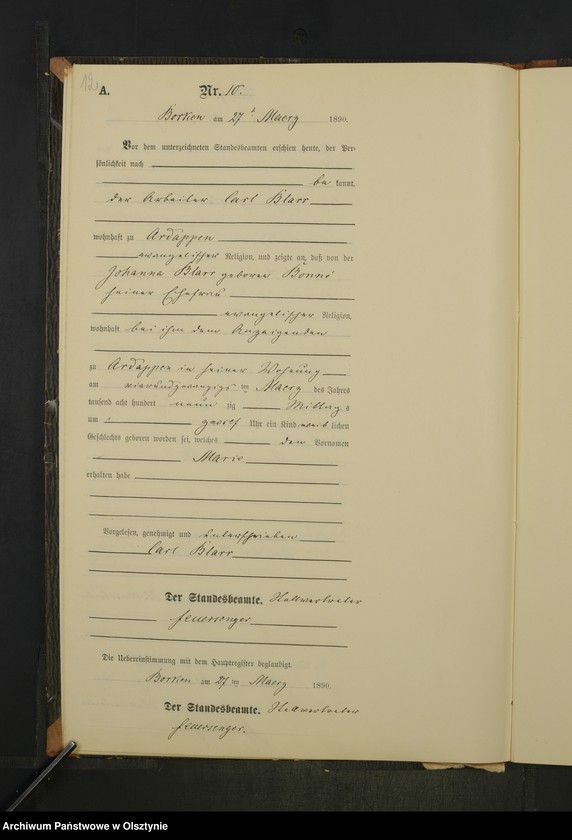 12
A. Nr. 10.
Borken am 27 t Maerz 1890.
Vor dem unterzeichneten Standesbeamten erschien heute, der Per-
sönlichkeit nach
be kannt,
der Arbeiter Carl Blarr
wohnhaft zu Ardappen
evangelischer Religion, und zeigte an, daß von der
Johanna Blarr geboren Bonné
seiner Ehefrau
evangelischer Religion,
wohnhaft bei ihm dem Anzeigenden
zu Ardappen in seiner Wohnung
am vierundzwanzigs ten Maerz des Jahres
tausend acht hundert neun zig Mittag s
um zwölf Uhr ein Kind weib lichen
Geschlechts geboren worden sei, welches den Vornamen
Marie
erhalten habe
Vorgelesen, genehmigt und unterschrieben
Carl Blarr
Der Standesbeamte. Stellvertreter
Feuersenger
Die Uebereinstimmung mit dem Hauptregister beglaubigt.
Borken am 27 ten Maerz 1890
Der Standesbeamte. Stellvertreter
Feuersenger.
Archiwum Państwowe w Olsztynie